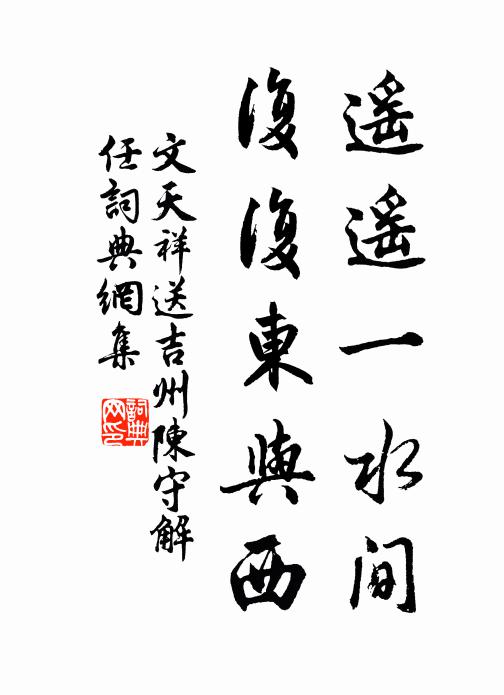 遥遥一水间
復復東與西
文天祥送吉州陳守解
任詞典網集
詞典
网印